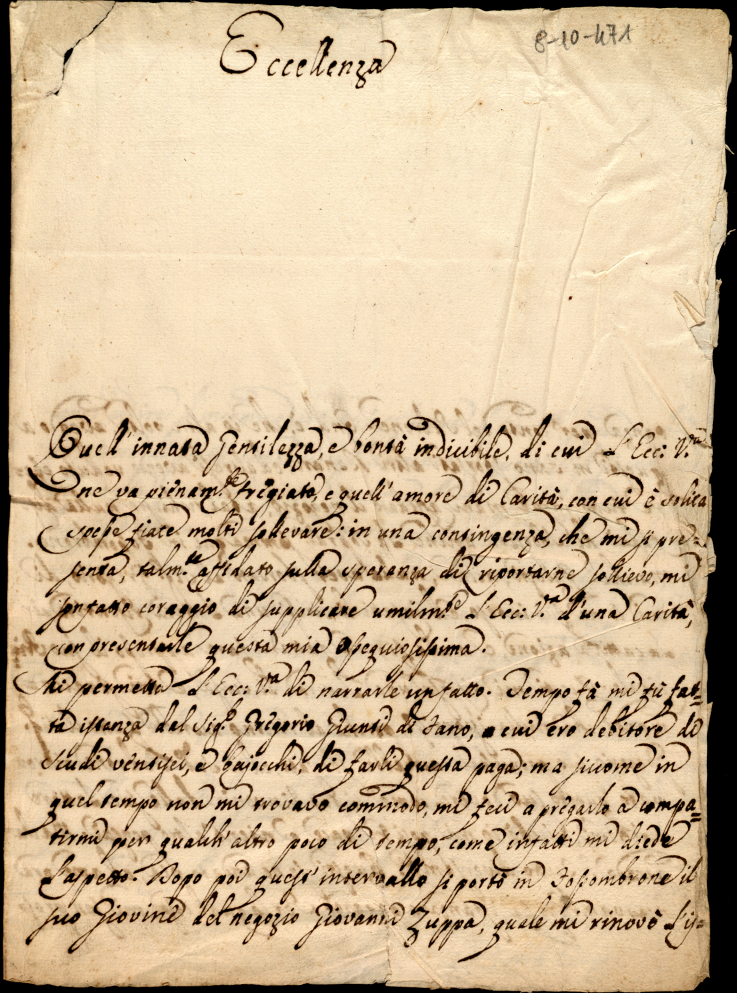 8-10-471
Eccellenza
Quell'innata Gentilezza, e bontà indicibile, di cui l'Ecc: V.ra
ne va pienam.te fregiata, e quell'amore di Carità, con cui è solita
spesse fiate molti sollevare: in una contingenza, che mi si pre=
senta, talm.te affidato sulla speranza di riportarne sollievo, mi
son fatto coraggio di supplicare umilm.te l'Ecc: V.ra d'una Carità,
con presentarle questa mia ossequiosissima.
Mi permetta l'Ecc: V.ra di narrarle un fatto. Tempo fà mi fù fat=
ta istanza dal Sig.r Gregorio Giunti di Fano, a cui ero debitore di
scudi ventisei, e bajocchi, di farli questa paga; ma siccome in
quel tempo non mi trovavo commodo, mi feci a pregarlo a compa=
tirmi per qualch'altro poco di tempo, come infatti mi diede
l'aspetto. Dopo poi quest'intervallo si portò in Fossombrone il
suo Giovine del negozio Giovanni Zuppa, quale mi rinovò l'is=